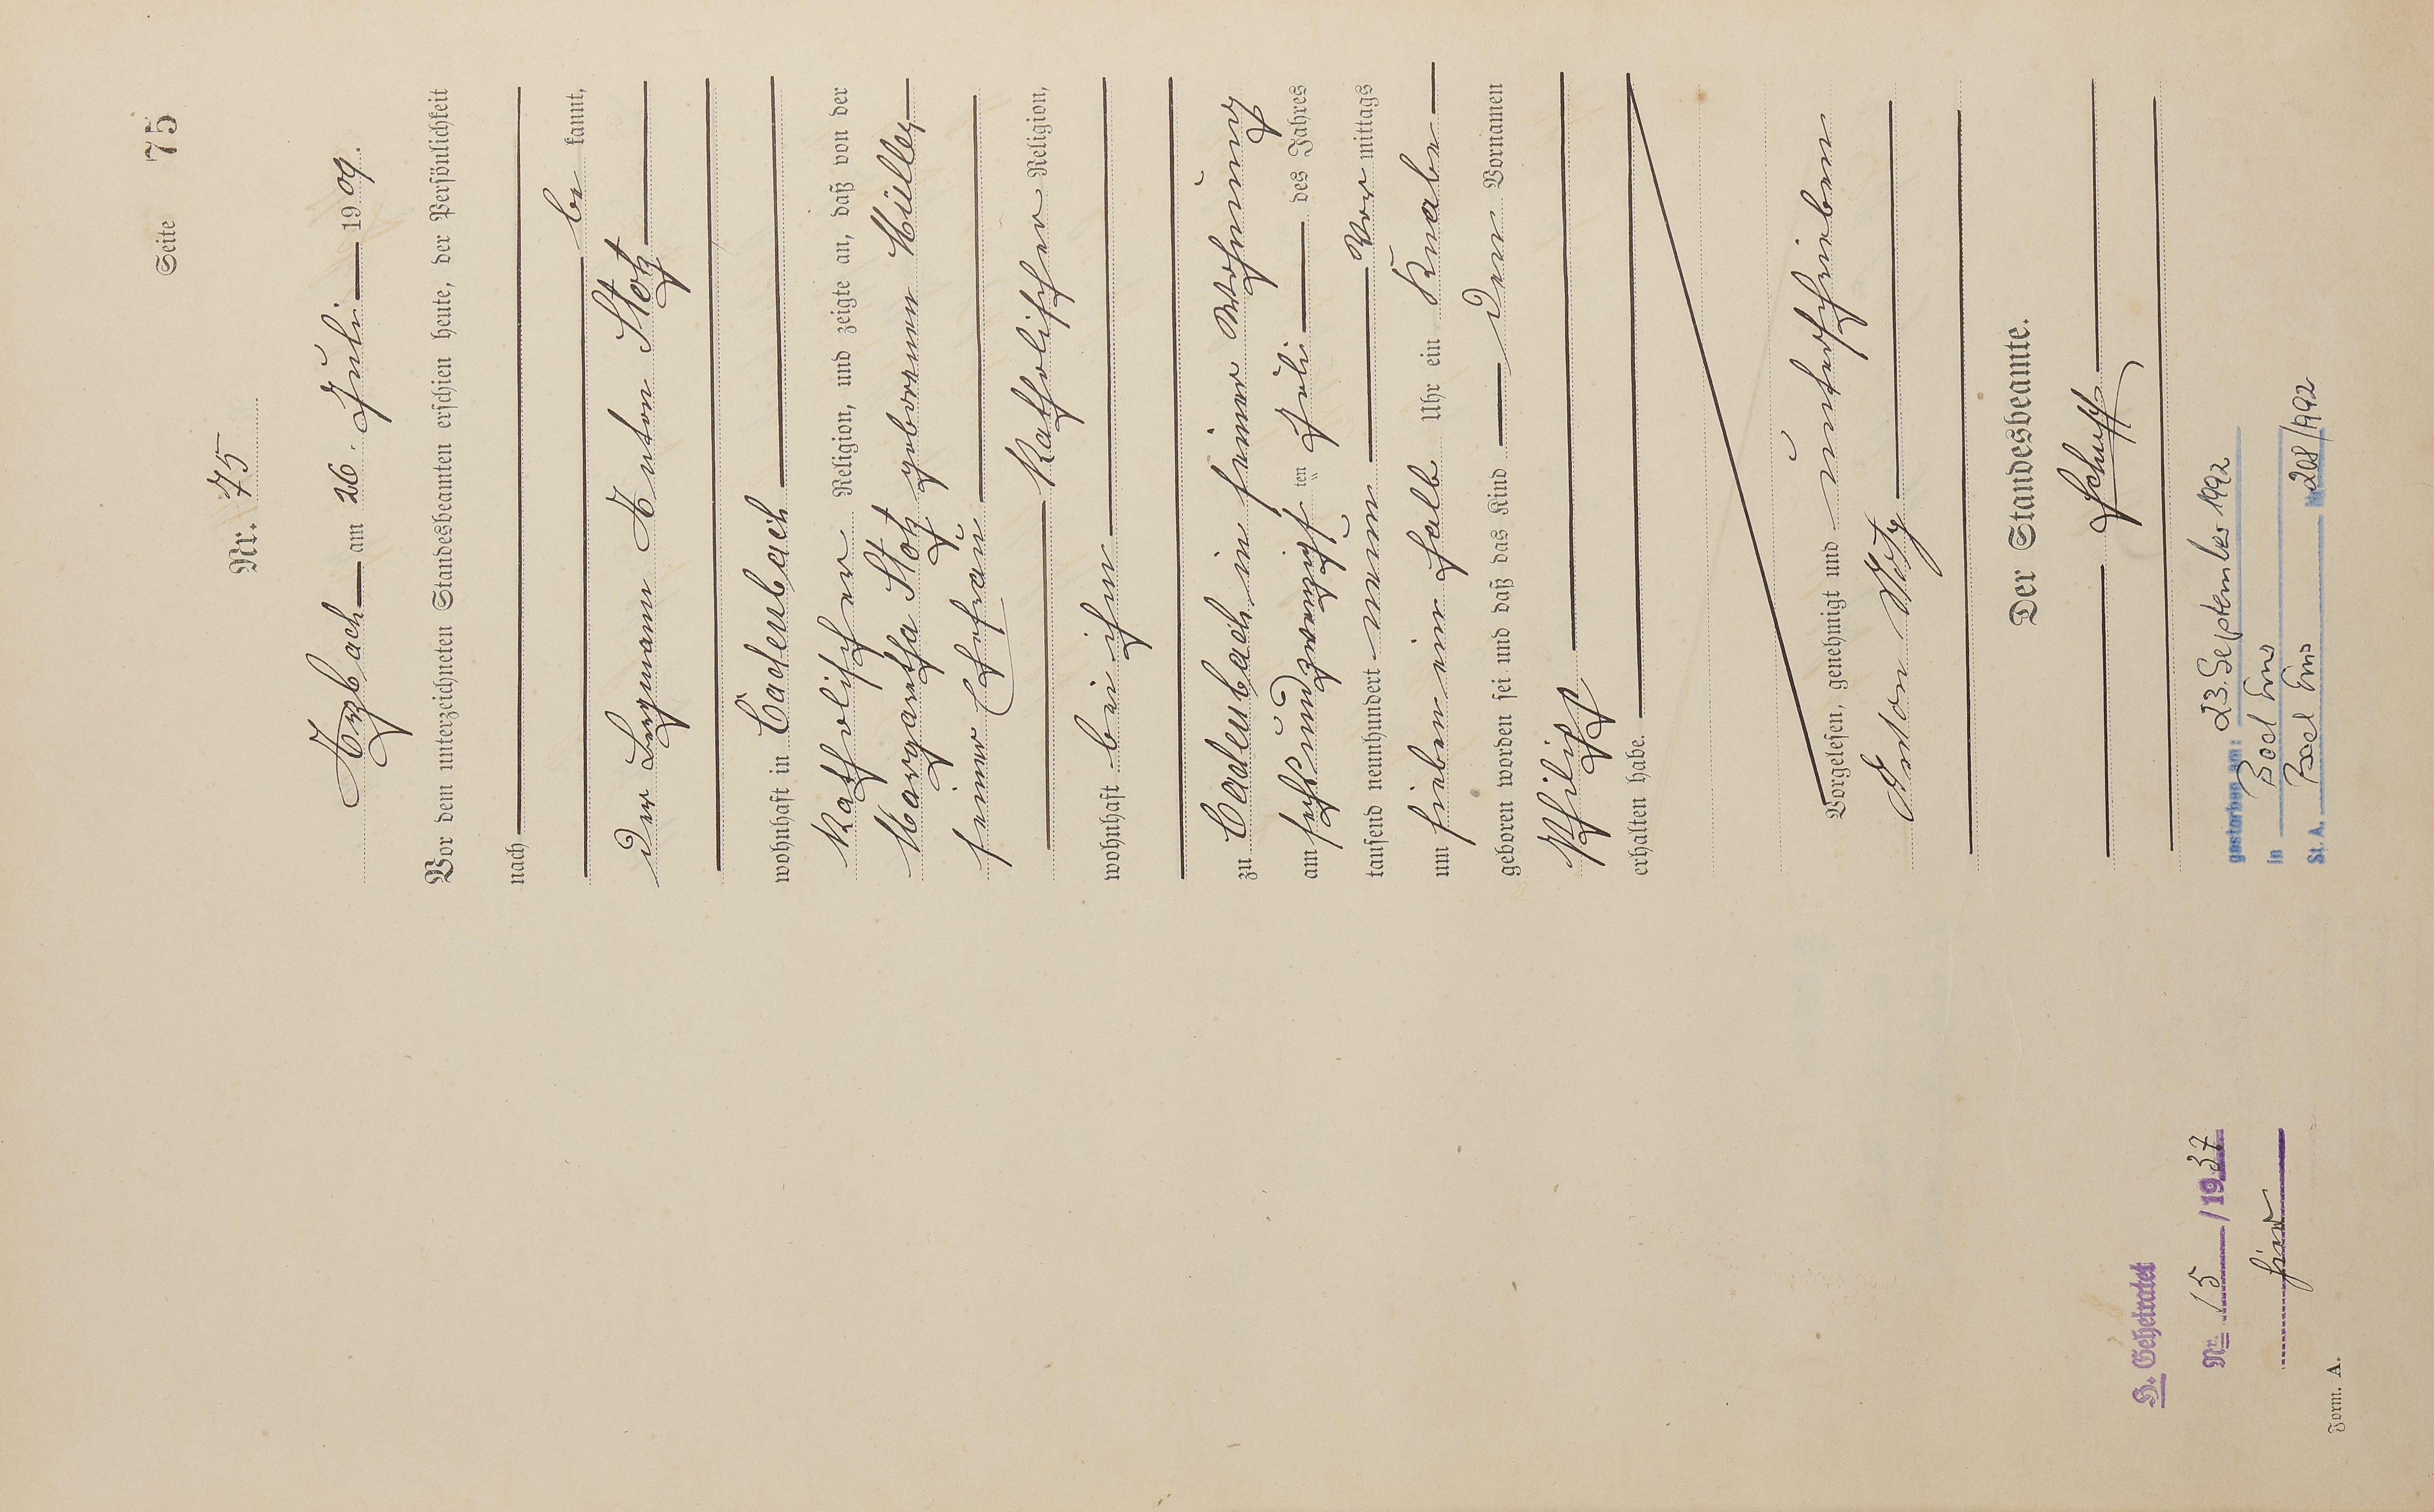 Seite 75
Nr. 75
Arzbach am 26. Juli 1909.
Vor dem unterzeichneten Standesbeamten erschien heute, der Persönlichkeit
nach
be kannt,
der Bergmann Anton Stotz
wohnhaft in Cadenbach
katholischer Religion, und zeigte an, daß von der
Margaretha Stotz geborenen Müller
seiner Ehefrau
katholischer Religion,
wohnhaft bei ihm
zu Cadenbach in seiner Wohnung
am sechsundzwanzigsten Juli des Jahres
tausend neunhundert neun Vor mittags
um sieben ein halb Uhr ein Knabe
geboren worden sei und daß das Kind den Vornamen
Philipp
erhalten habe.
Vorgelesen, genehmigt und unterschrieben
Anton Stotz
Der Standesbeamte.
Schupp
gestorben am: 23. September 1992
in Bad Ems
St. A. Bad Ems Nr. 208/1992
H. Geheiratet
Nr. 15/1937
hier
Form. A.